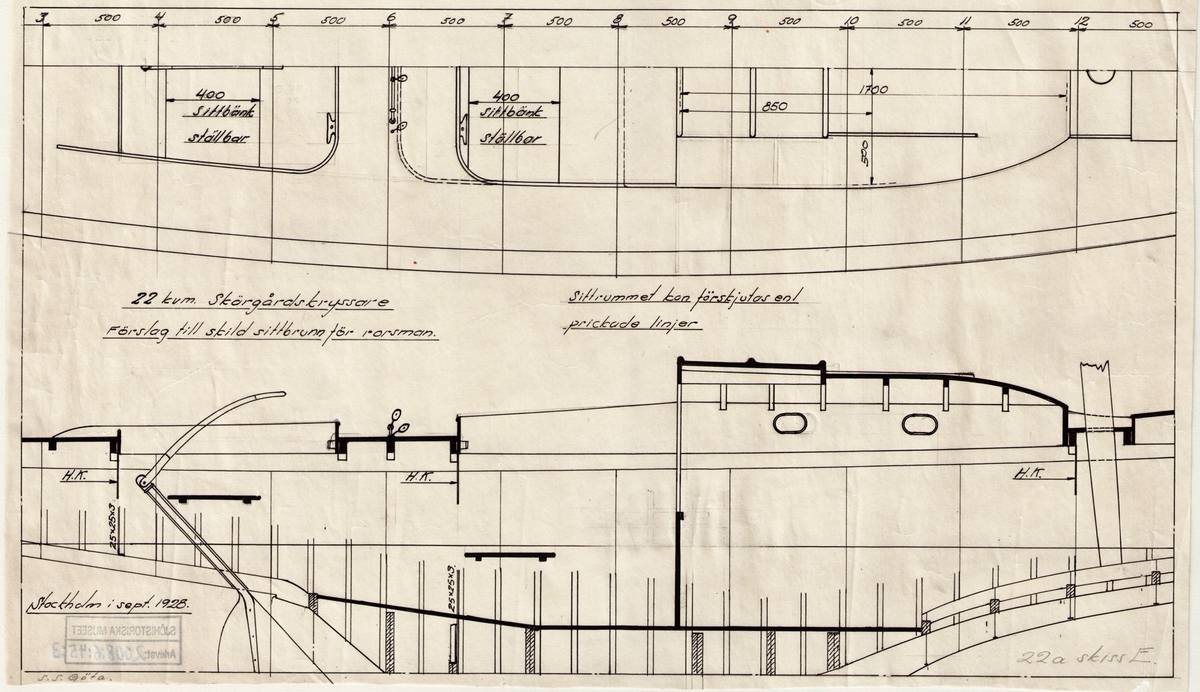 3 500 4 500 5 500 6 500 7 500 8 500 9 500 10 500 11 500 12 500
400
Sittbänk
ställbar
400
Sittbänk
ställbar
1700
850
22 kvm. Skärgårdskryssare
Förslag till skild sittbrunn för rorsman.
Sittrummet kan förskjutas enl
prickade linjer
H.K.
H.K.
H.K.
25×25×3
25×25×3
Stockholm i sept. 1928.
SJÖHISTORISKA MUSEET
Arkivst:
S.S. Göta.
22a skiss E.